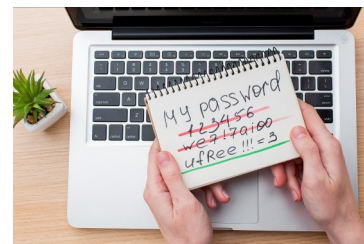 My password
123456
we7!7a!oo
ufRee!!!=3